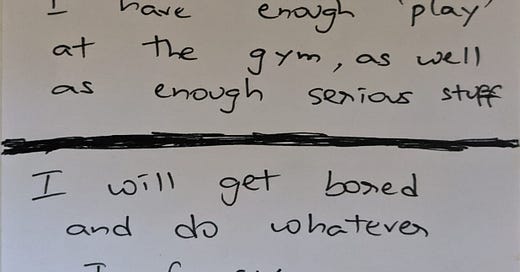 I have enough 'play'
at the gym, as well
as enough serious stuff
I will get bored
and do whatever
I